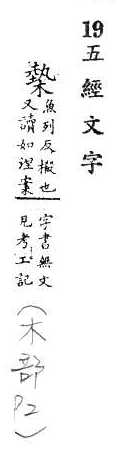 19 五經文字
槷
魚列反橛也
又讀如涅案
字書無文
見考工記
(木部P2)